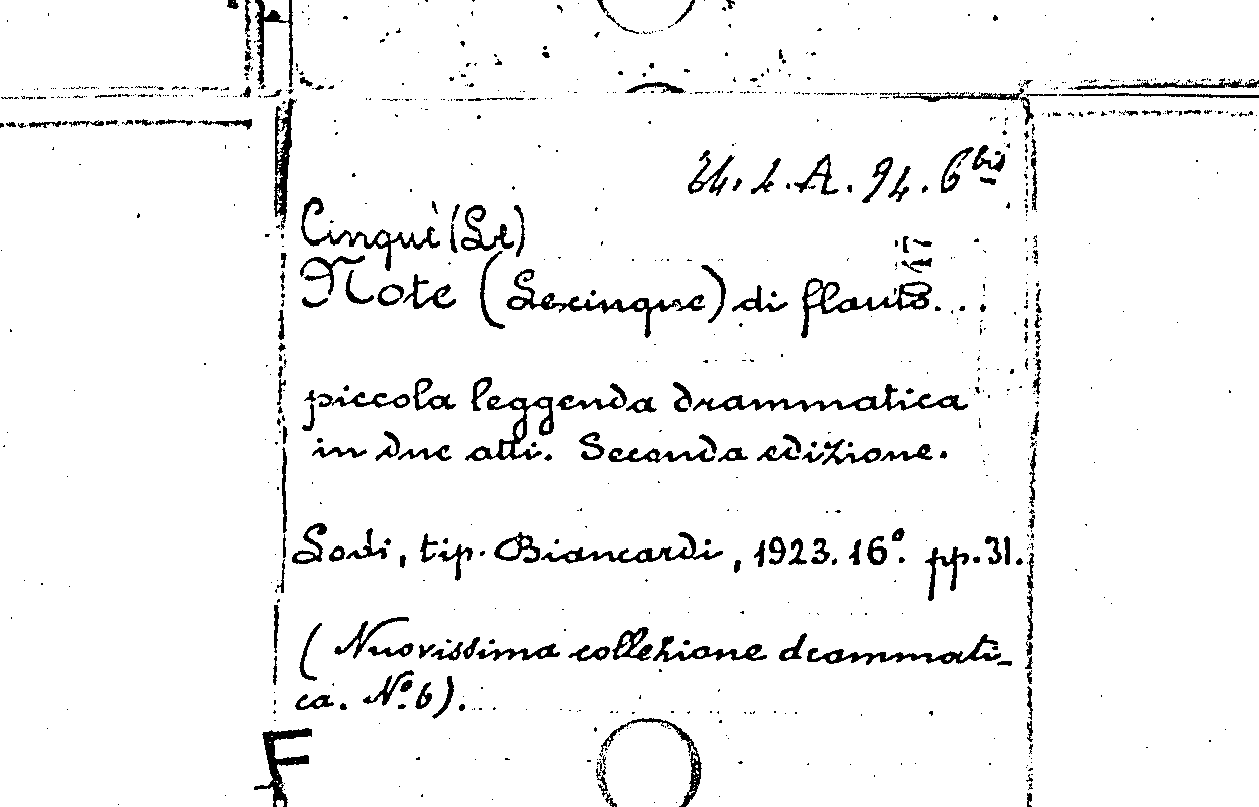 24. 2. A. 94. 6 bis
Cinque (Le)
Note (Le cinque) di flauto...
piccola leggenda drammatica
in due atti. Seconda edizione.
Lodi, tip. Biancardi, 1923. 16°. pp. 31.
(Nuovissima collezione drammati-
ca. N.° 6).
F